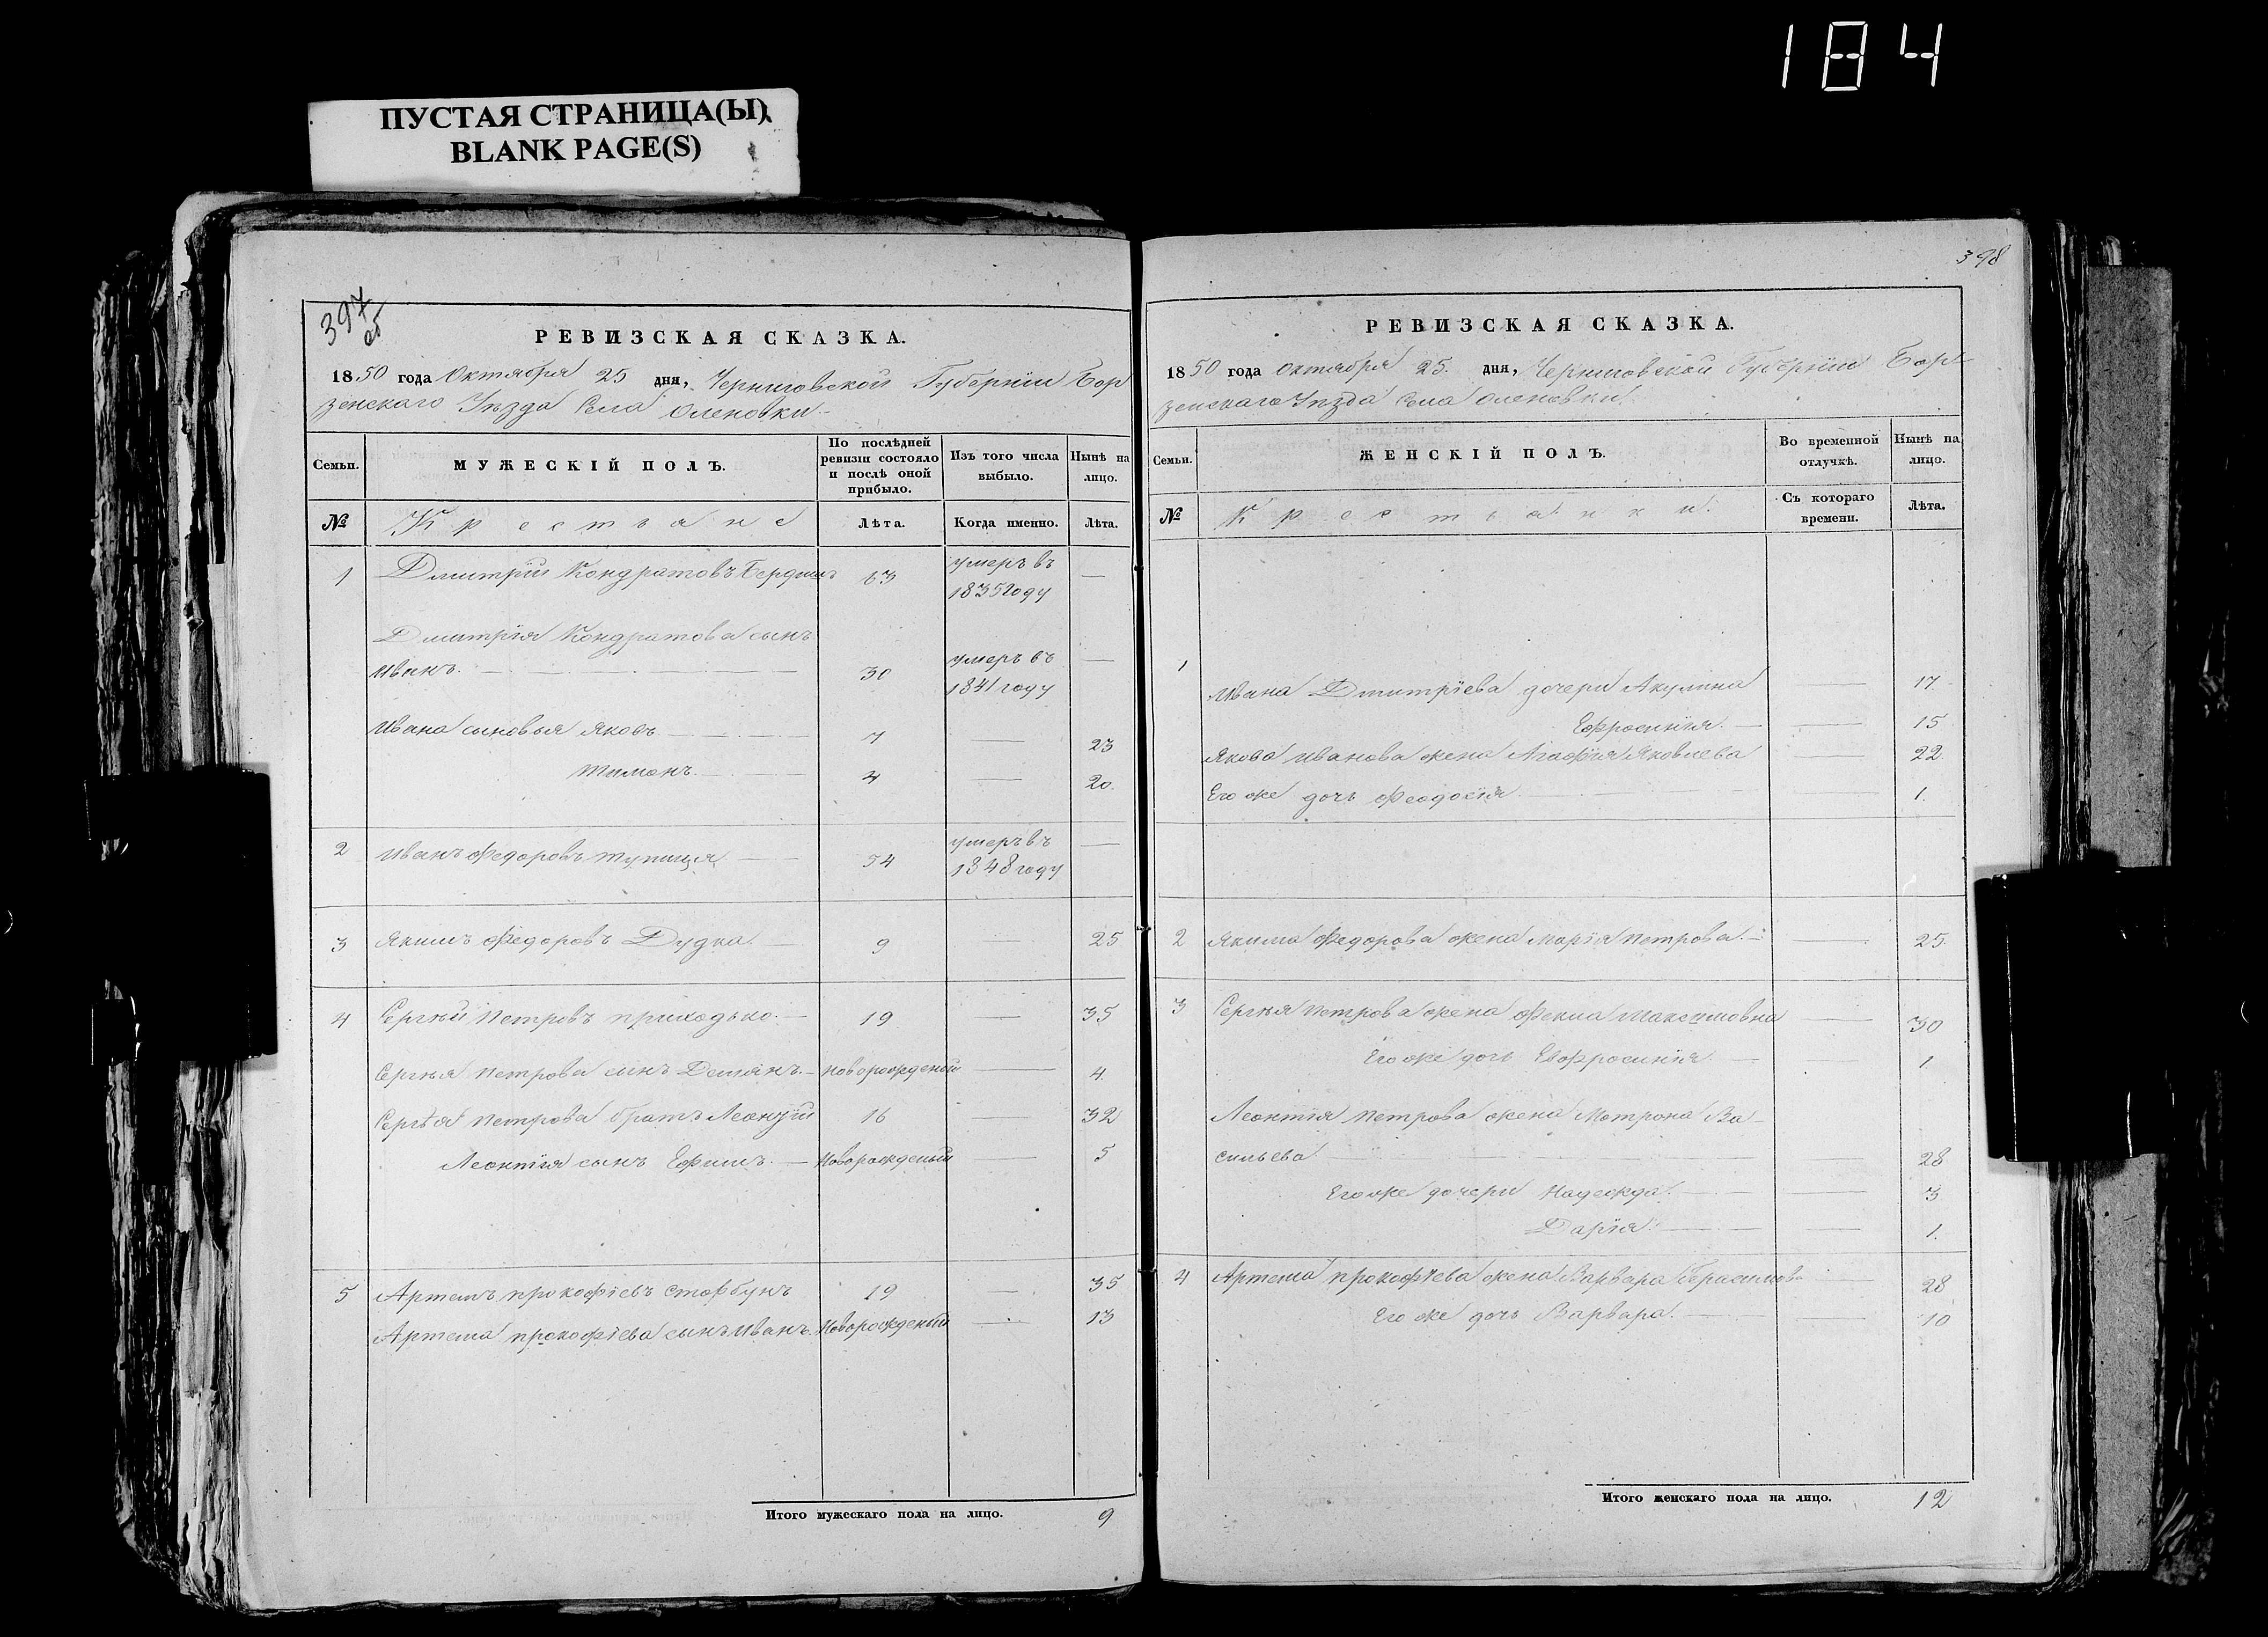 184
ПУСТАЯ СТРАНИЦА(Ы)
BLANK PAGE(S)
397
об
РЕВИЗСКАЯ СКАЗКА.
1850 года Октября 25 дня, Черниговской Губернїи Бор
зенскаго Уѣзда Села Оленовки
Семьи. МУЖЕСКІЙ ПОЛЪ. По послѣдней ревизіи состояло и послѣ оной прибыло. Изъ того числа выбыло. Нынѣ на лицо.
№ Крестьяне Лѣта. Когда именно. Лѣта.
1 Дмитрїй Кондратовъ 63 умеръ въ —
1835 году
Дмитрїя Кондратова сынъ
Иванъ. 30 умеръ въ —
1841 году
Ивана сыновья Яковъ 7 — 23
Тимонъ 4 — 20.
2 Иванъ Федоровъ Тупиця 54 умеръ въ —
1848 году
3 Якимъ Федоровъ Дудка. 9 — 25
4 Сергѣй Петровъ Приходько. 19 — 35
Сергѣя Петрова синъ Демянъ. Новорожденый — 4.
Сергѣя Петрова братъ Леонтїй 16 — 32
Леонтїя сынъ Ефимъ. Новорожденый — 5
5 Артемъ Прокофїевъ 19 — 35
Артема Прокофїева сынъ Иванъ. Новорожденый — 13
Итого мужескаго пола на лицо. 9
398
РЕВИЗСКАЯ СКАЗКА.
1850 года Октября 25. дня, Черниговской Губернїи Бор
зенскаго Уѣзда Села Оленовки
Семьи. ЖЕНСКІЙ ПОЛЪ. Во временной отлучкѣ. Нынѣ на лицо.
№ Крестьянки. Съ котораго времени. Лѣта.
1
Ивана Дмитрїева дочери Акулина — 17
Ефросинїя. — 15
Якова Иванова жена Агафїя Яковлева — 22.
Его же дочь Феодосїя — 1.
2 Якима Федорова жена Марїя Петрова. — 25.
3 Сергѣя Петрова жена Фекла Максимовна — 30
Его же дочь Евфросинїя. 1
Леонтїя Петрова жена Мотрона Ва-
сильева — 28
Его же дочери Надежда. — 3
Дарїя. — 1.
4 Артема Прокофїева жена Варвара Герасимова — 28
Его же дочь Варвара. — 10
Итого женскаго пола на лицо. 12